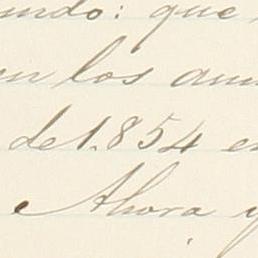 undo: que
en los anu
de 1.854 en
e Ahora y